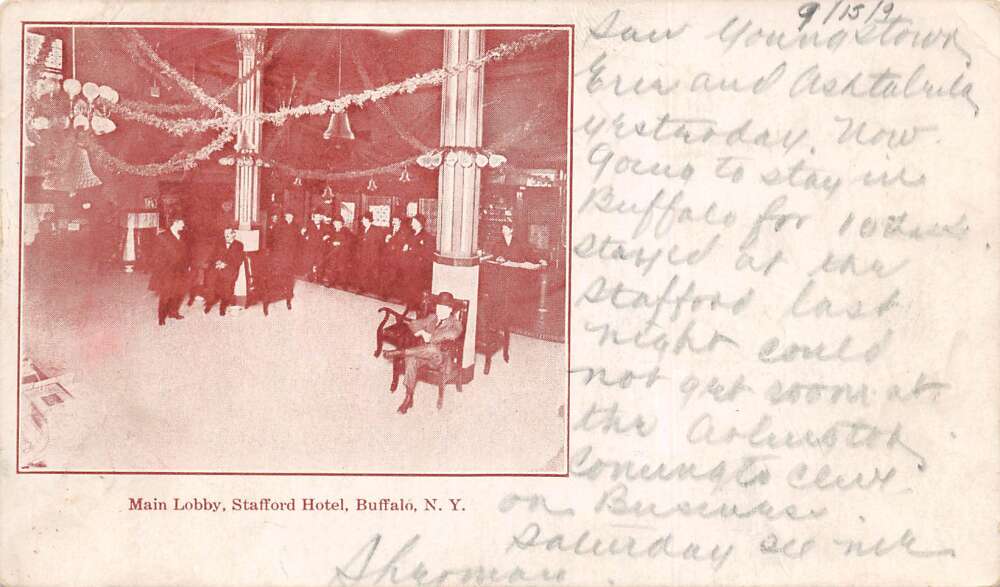 9/15/9
Saw Youngstown
Erie and Ashtabula
yesterday. Now
Going to stay in
Buffalo for 10
stayed at the
Stafford last
night could
not get room at
the Arlington
Coming to Cleve
on Business
Saturday see me
Main Lobby, Stafford Hotel, Buffalo, N. Y.